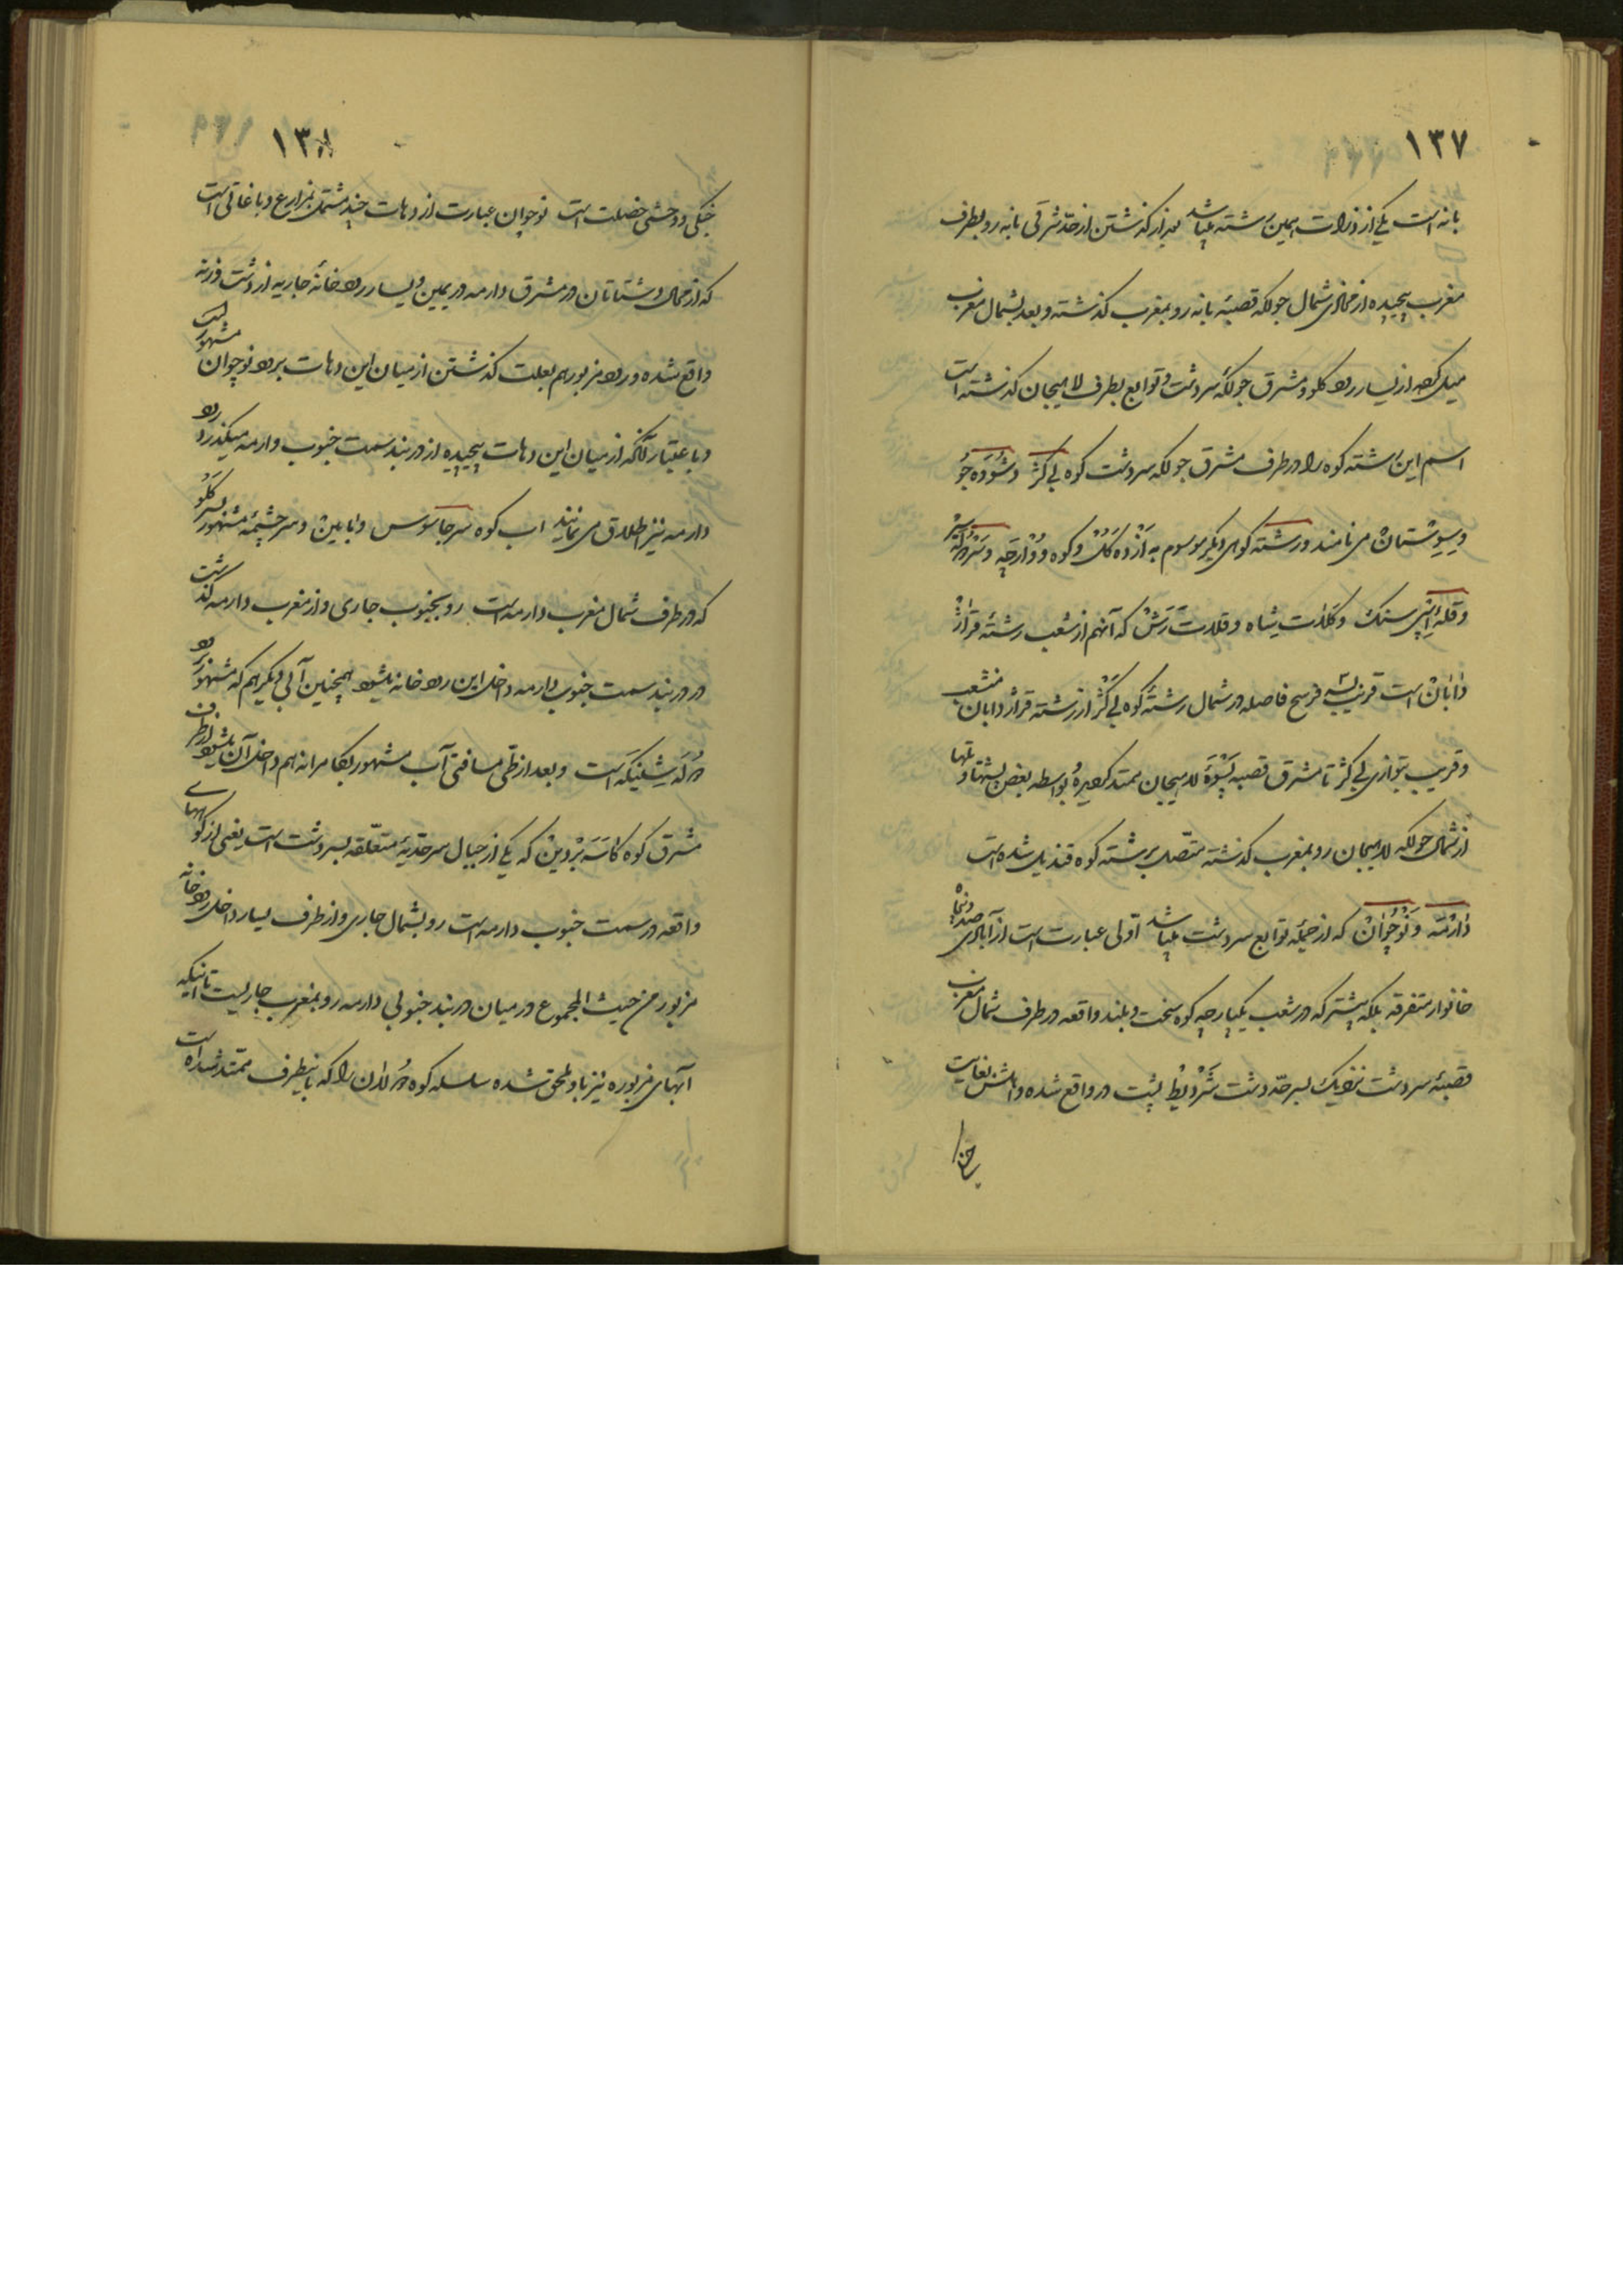 ١٣٧
بانه است یکی از ذروات همین رشته میباشد بعد از گذشتن از حدّ شرقی بانه رو بطرف
مغرب پیچیده از محاذی شمال جولکه قصبهٔ بانه رو بمغرب گذشته و بعد بشمال مغرب
میل کرده از یسار رود کلو و مشرق جولکهٔ سردشت و توابع بطرف لاهیجان گذشته است
اسم این رشته کوه را در طرف مشرق جولکه سردشت کوه
می نامند و رشته کوهی دیگر موسوم به و کوه
و قلهٔ سنک و و قلات رَش که آنهم از شعب رشتهٔ
است قریب بسه فرسخ فاصله در شمال رشتهٔ کوه از رشته منشعب
و قریب بتوازی تا مشرق قصبه لاهیجان ممتد کردیده بواسطه بعض پشتها و تلها
از شمال جولکه لاهیجان رو بمغرب گذشته متّصل برشته کوه قندیل شده است
دَارْمَه وَ نَوْچُوَانْ که از جملهٔ توابع سردشت میباشد اوّلی عبارت است از آبادی صد و پنجاه
خانوار متفرقه بلکه بیشتر که در شعب یکپارچه کوه سخت و بلند واقعه در طرف شمال مغرب
قصبهٔ سردشت نزدیک بسر حدّ دشت پشت در واقع شده و اهلش بغایت
جنگی
١٣٨
جنگی و وحشی خصلت است نوچوان عبارت از دهات چند مشتمل بمزارع و باغاتی است
که از محال و شتاتان در مشرق دارمه در یمین و یسار رودخانهٔ جاریه از دشت وزنه
واقع شده و رود مزبور هم بعلت گذشتن از میان این دهات برود نوچوان مشهور است
و باعتبار آنکه از میان این دهات پیچیده از دربند سمت جنوب دارمه میگذرد رود
دارمه نیز اطلاق می نمایند آب کوه سرجاسوس و و سرچشمهٔ مشهور بسر کلو
که در طرف شمال مغرب دارمه است رو بجنوب جاری و از مغرب دارمه گذشته
در دربند سمت جنوب دارمه داخل این رودخانه میشود همچنین آبی دیگر هم که مشهور برود
است و بعد از طی مسافتی آب مشهور هم داخل آن میشود از طرف
مشرق کوه کاسَه بَرْدین که یکی از جبال سرحدّیهٔ متعلّقه بسردشت است یعنی از کوههای
واقعه در سمت جنوب دارمه است رو بشمال جاری و از طرف یسار داخل رودخانه
مزبور من حیث المجموع در میان دربند جنوبی دارمه رو بمغرب جاریست تا اینکه
آبهای مزبوره نیز باو ملحق شده سلسله کوه را که باینطرف ممتد شده است